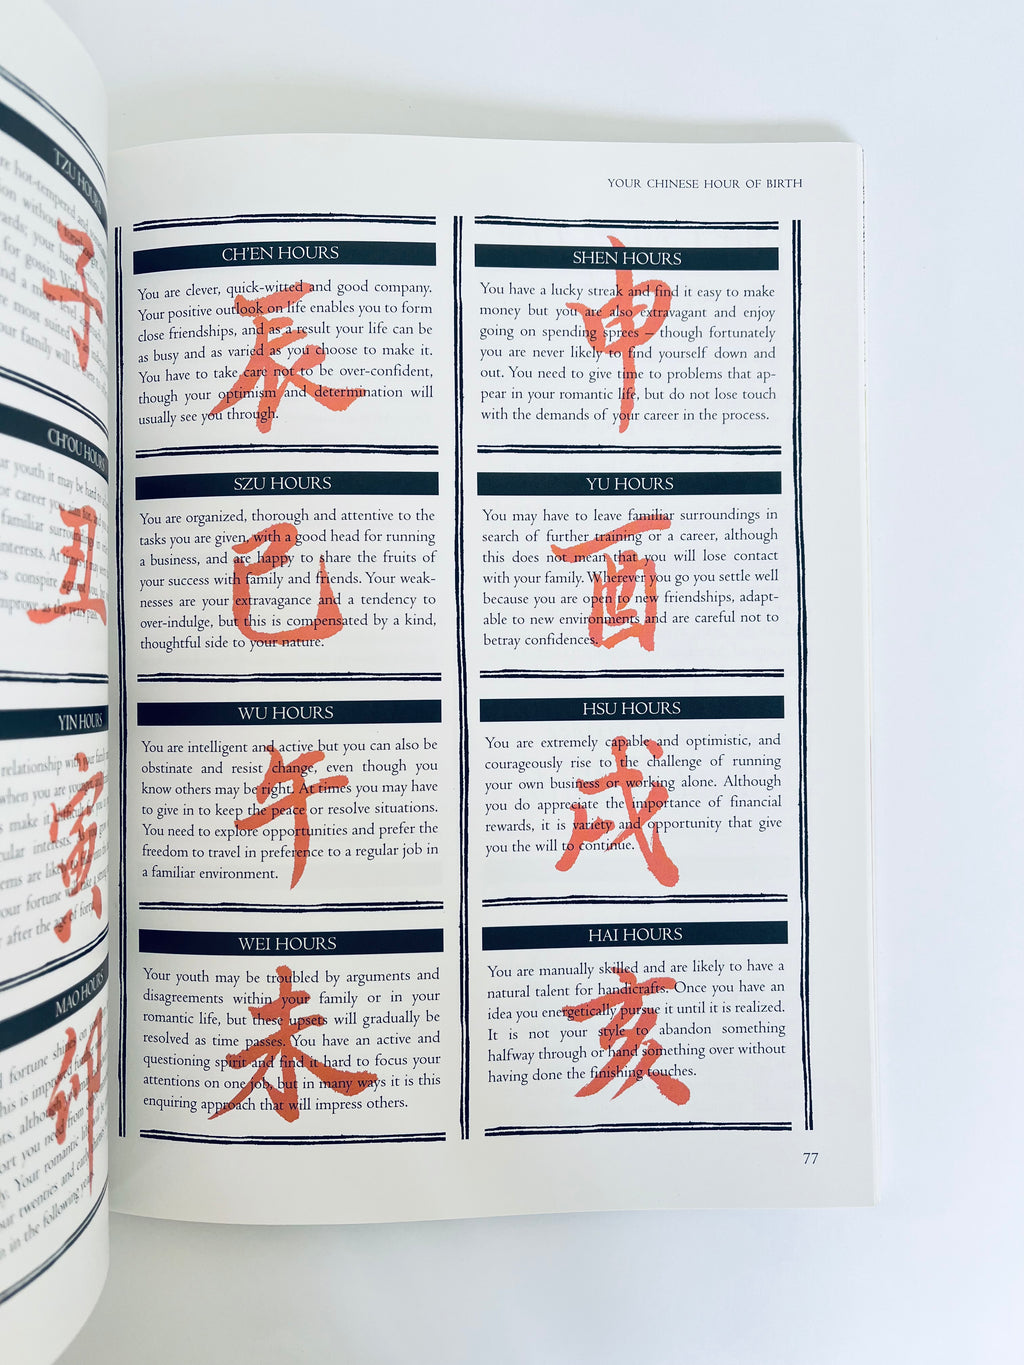 TZU HOURS
子
for gossip.
CH'OU HOURS
丑
YIN HOURS
relationship with your
when you are
寅
your fortune will
after the age of
MAO HOURS
卯
fortune shines
Your romantic
your twenties and early
in the following years.
YOUR CHINESE HOUR OF BIRTH
CH'EN HOURS
辰
You are clever, quick-witted and good company.
Your positive outlook on life enables you to form
close friendships, and as a result your life can be
as busy and as varied as you choose to make it.
You have to take care not to be over-confident,
though your optimism and determination will
usually see you through.
SZU HOURS
巳
You are organized, thorough and attentive to the
tasks you are given, with a good head for running
a business, and are happy to share the fruits of
your success with family and friends. Your weak-
nesses are your extravagance and a tendency to
over-indulge, but this is compensated by a kind,
thoughtful side to your nature.
WU HOURS
午
You are intelligent and active but you can also be
obstinate and resist change, even though you
know others may be right. At times you may have
to give in to keep the peace or resolve situations.
You need to explore opportunities and prefer the
freedom to travel in preference to a regular job in
a familiar environment.
WEI HOURS
未
Your youth may be troubled by arguments and
disagreements within your family or in your
romantic life, but these upsets will gradually be
resolved as time passes. You have an active and
questioning spirit and find it hard to focus your
attentions on one job, but in many ways it is this
enquiring approach that will impress others.
SHEN HOURS
申
You have a lucky streak and find it easy to make
money but you are also extravagant and enjoy
going on spending sprees – though fortunately
you are never likely to find yourself down and
out. You need to give time to problems that ap-
pear in your romantic life, but do not lose touch
with the demands of your career in the process.
YU HOURS
酉
You may have to leave familiar surroundings in
search of further training or a career, although
this does not mean that you will lose contact
with your family. Wherever you go you settle well
because you are open to new friendships, adapt-
able to new environments and are careful not to
betray confidences.
HSU HOURS
戌
You are extremely capable and optimistic, and
courageously rise to the challenge of running
your own business or working alone. Although
you do appreciate the importance of financial
rewards, it is variety and opportunity that give
you the will to continue.
HAI HOURS
亥
You are manually skilled and are likely to have a
natural talent for handicrafts. Once you have an
idea you energetically pursue it until it is realized.
It is not your style to abandon something
halfway through or hand something over without
having done the finishing touches.
77